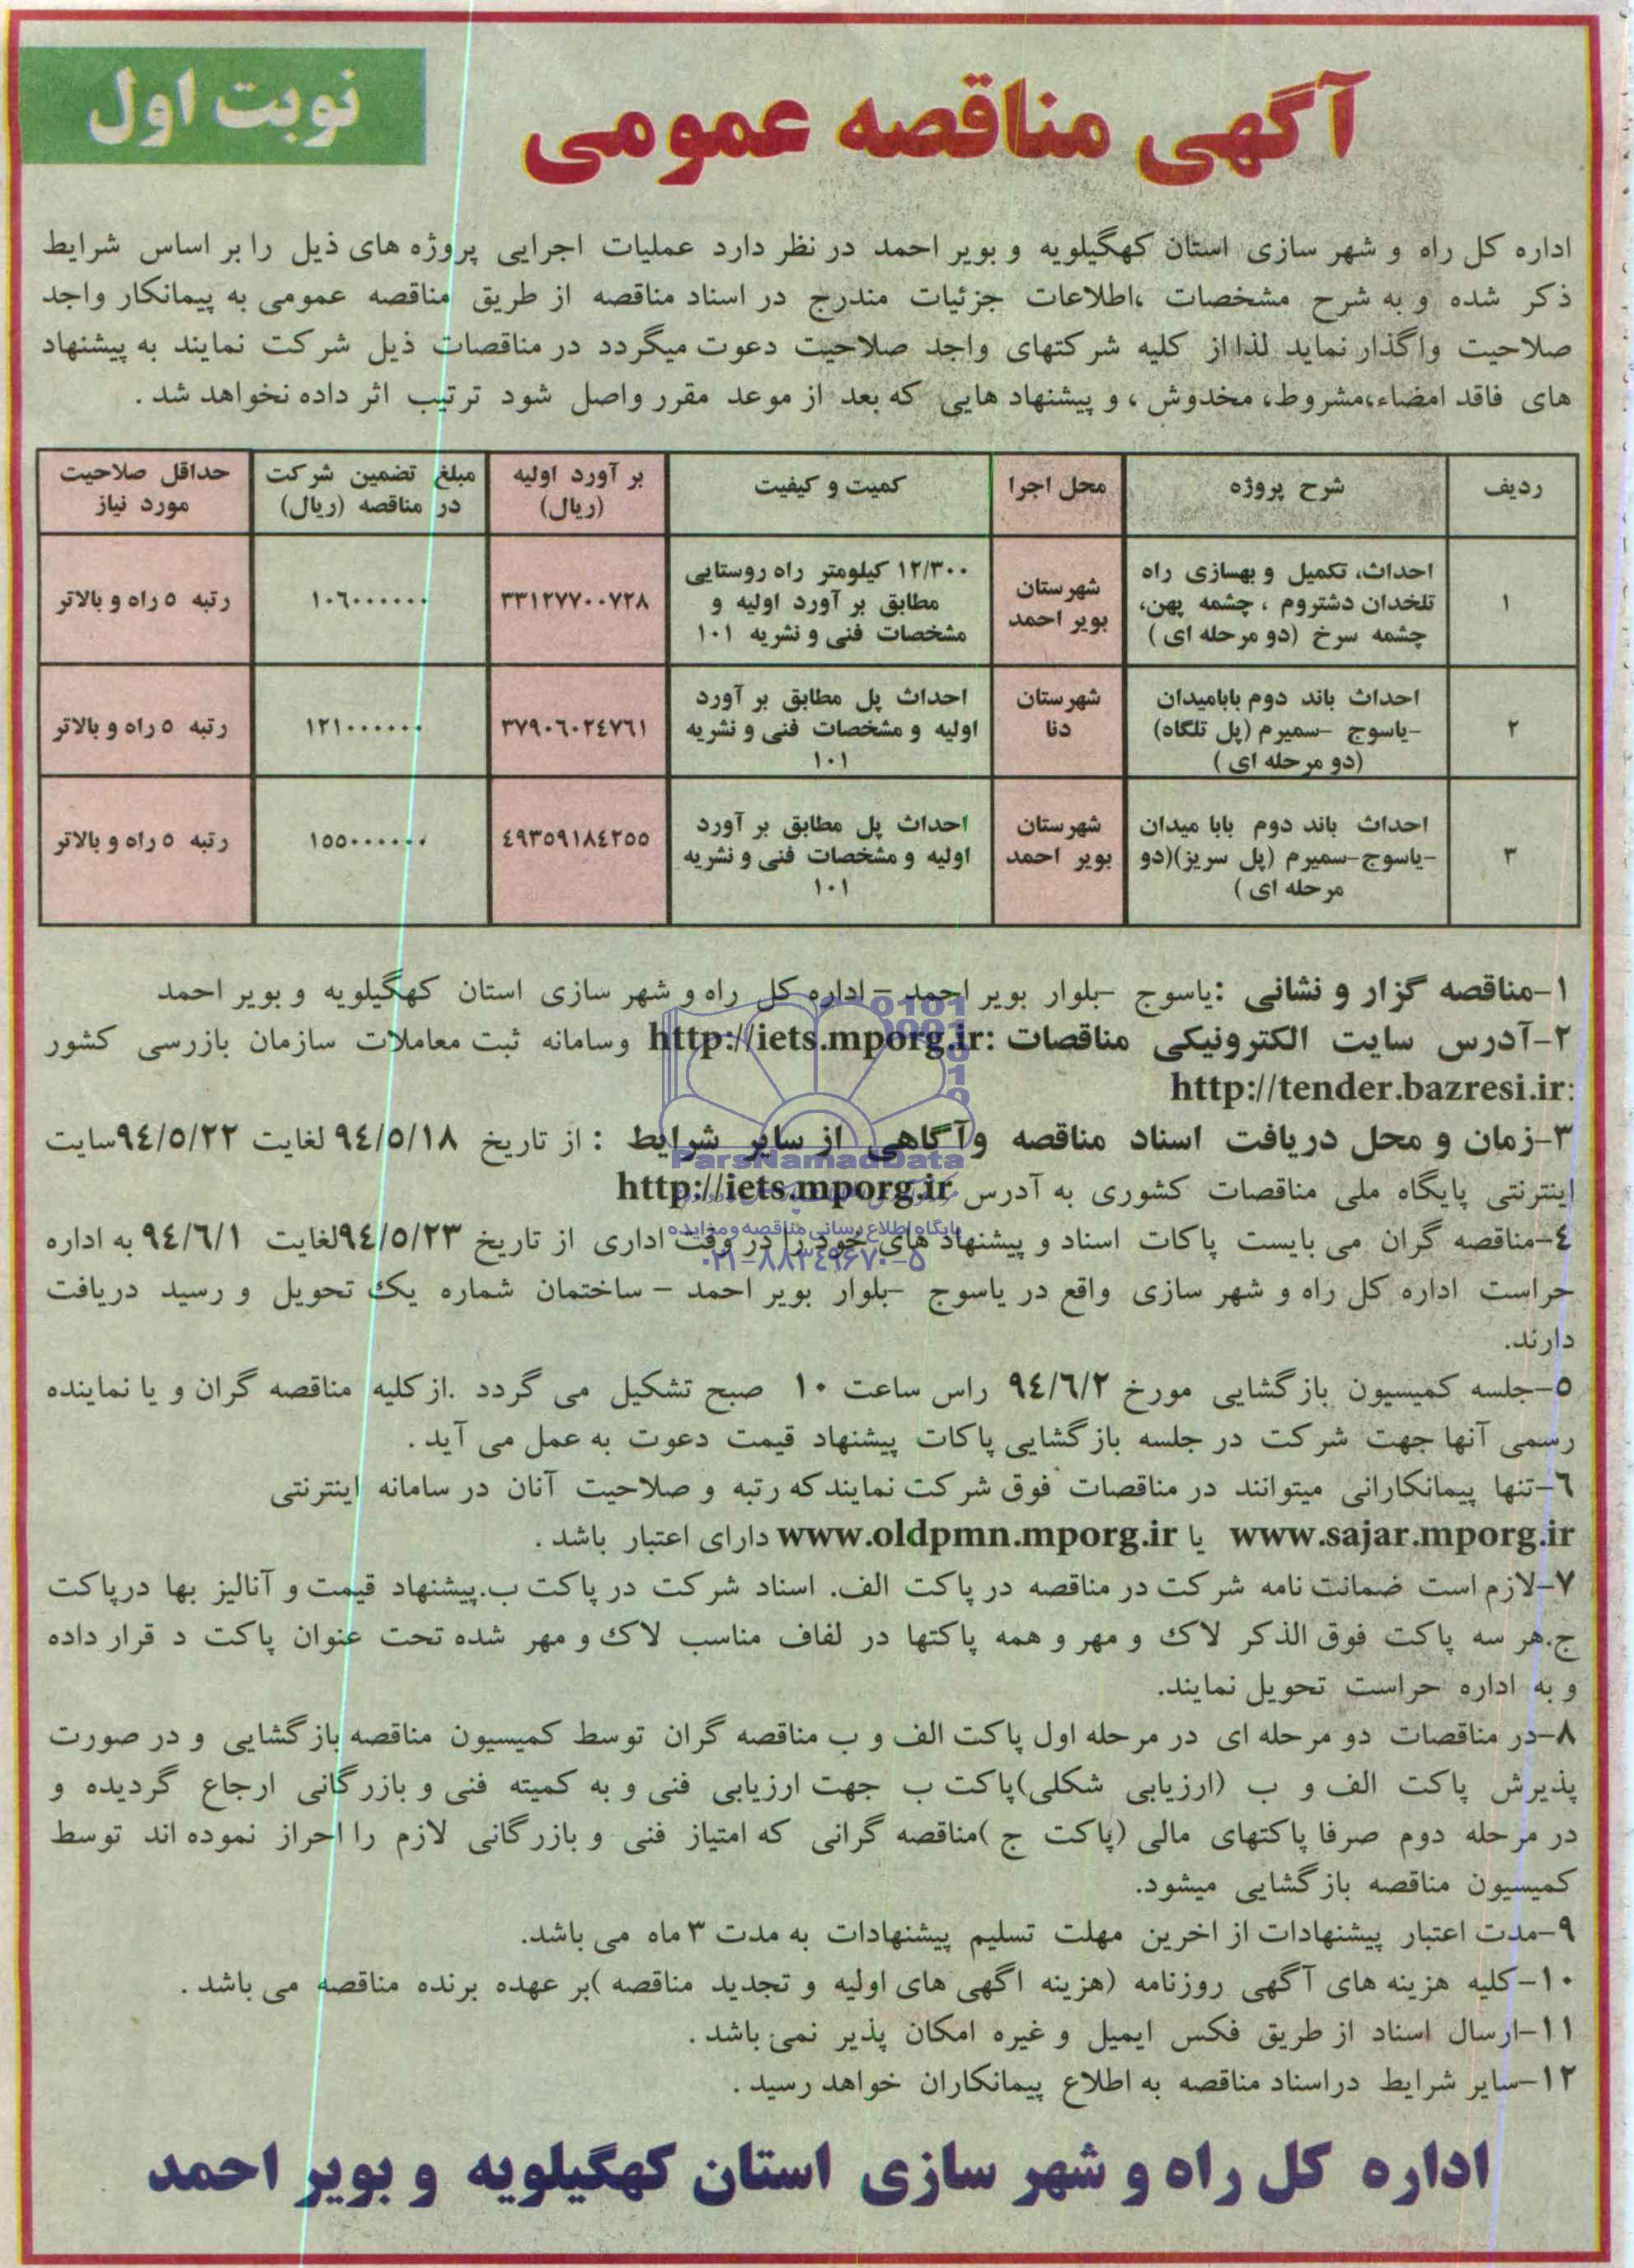 آگهی مناقصه عمومی
نوبت اول
اداره کل راه و شهر سازی استان کهگیلویه و بویر احمد در نظر دارد عملیات اجرایی پروژه های ذیل را بر اساس شرایط
ذکر شده و به شرح مشخصات ،اطلاعات جزئیات مندرج در اسناد مناقصه از طریق مناقصه عمومی به پیمانکار واجد
صلاحیت واگذار نماید لذا از کلیه شرکتهای واجد صلاحیت دعوت میگردد در مناقصات ذیل شرکت نمایند به پیشنهاد
های فاقد امضاء،مشروط، مخدوش ، و پیشنهاد هایی که بعد از موعد مقرر واصل شود ترتیب اثر داده نخواهد شد .
ردیف
شرح پروژه
محل اجرا
کمیت و کیفیت
بر آورد اولیه
(ریال)
مبلغ تضمین شرکت
در مناقصه (ریال)
حداقل صلاحیت
مورد نیاز
۱
احداث، تکمیل و بهسازی راه
تلخدان دشتروم ، چشمه پهن،
چشمه سرخ (دو مرحله ای )
شهرستان
بویر احمد
۱۲/۳۰۰ کیلومتر راه روستایی
مطابق بر آورد اولیه و
مشخصات فنی و نشریه ۱۰۱
۳۳۱۲۷۷۰۰۷۲۸
۱۰۶۰۰۰۰۰۰۰
رتبه ۵ راه و بالاتر
۲
احداث باند دوم بابامیدان
-یاسوج -سمیرم (پل تلگاه)
(دو مرحله ای )
شهرستان
دنا
احداث پل مطابق بر آورد
اولیه و مشخصات فنی و نشریه
۱۰۱
۳۷۹۰۶۰۲٤۷۶۱
۱۲۱۰۰۰۰۰۰۰
رتبه ۵ راه و بالاتر
۳
احداث باند دوم بابا میدان
-یاسوج-سمیرم (پل سریز)(دو
مرحله ای )
شهرستان
بویر احمد
احداث پل مطابق بر آورد
اولیه و مشخصات فنی و نشریه
۱۰۱
٤۹۳۵۹۱۸٤۲۵۵
۱۵۵۰۰۰۰۰۰۰
رتبه ۵ راه و بالاتر
۱-مناقصه گزار و نشانی :یاسوج -بلوار بویر احمد – اداره کل راه و شهر سازی استان کهگیلویه و بویر احمد
۲-آدرس سایت الکترونیکی مناقصات :http://iets.mporg.ir وسامانه ثبت معاملات سازمان بازرسی کشور
:http://tender.bazresi.ir
۳-زمان و محل دریافت اسناد مناقصه وآگاهی از سایر شرایط : از تاریخ ۹٤/۵/۱۸ لغایت ۹٤/۵/۲۲سایت
اینترنتی پایگاه ملی مناقصات کشوری به آدرس http://iets.mporg.ir
٤-مناقصه گران می بایست پاکات اسناد و پیشنهاد های خود را در وقت اداری از تاریخ ۹٤/۵/۲۳لغایت ۹٤/۶/۱ به اداره
حراست اداره کل راه و شهر سازی واقع در یاسوج -بلوار بویر احمد – ساختمان شماره یک تحویل و رسید دریافت
دارند.
۵-جلسه کمیسیون بازگشایی مورخ ۹٤/۶/۲ راس ساعت ۱۰ صبح تشکیل می گردد .ازکلیه مناقصه گران و یا نماینده
رسمی آنها جهت شرکت در جلسه بازگشایی پاکات پیشنهاد قیمت دعوت به عمل می آید .
۶-تنها پیمانکارانی میتوانند در مناقصات فوق شرکت نمایندکه رتبه و صلاحیت آنان در سامانه اینترنتی
www.sajar.mporg.ir یا www.oldpmn.mporg.ir دارای اعتبار باشد .
۷-لازم است ضمانت نامه شرکت در مناقصه در پاکت الف. اسناد شرکت در پاکت ب.پیشنهاد قیمت و آنالیز بها درپاکت
ج.هر سه پاکت فوق الذکر لاک و مهر و همه پاکتها در لفاف مناسب لاک و مهر شده تحت عنوان پاکت د قرار داده
و به اداره حراست تحویل نمایند.
۸-در مناقصات دو مرحله ای در مرحله اول پاکت الف و ب مناقصه گران توسط کمیسیون مناقصه بازگشایی و در صورت
پذیرش پاکت الف و ب (ارزیابی شکلی)پاکت ب جهت ارزیابی فنی و به کمیته فنی و بازرگانی ارجاع گردیده و
در مرحله دوم صرفا پاکتهای مالی (پاکت ج )مناقصه گرانی که امتیاز فنی و بازرگانی لازم را احراز نموده اند توسط
کمیسیون مناقصه بازگشایی میشود.
۹-مدت اعتبار پیشنهادات از اخرین مهلت تسلیم پیشنهادات به مدت ۳ ماه می باشد.
۱۰-کلیه هزینه های آگهی روزنامه (هزینه اگهی های اولیه و تجدید مناقصه )بر عهده برنده مناقصه می باشد .
۱۱-ارسال اسناد از طریق فکس ایمیل و غیره امکان پذیر نمی باشد .
۱۲-سایر شرایط دراسناد مناقصه به اطلاع پیمانکاران خواهد رسید .
اداره کل راه و شهر سازی استان کهگیلویه و بویر احمد
ParsNamadData
پایگاه اطلاع رسانی مناقصه و مزایده
۰۲۱-۸۸۳٤۹۶۷۰-۵